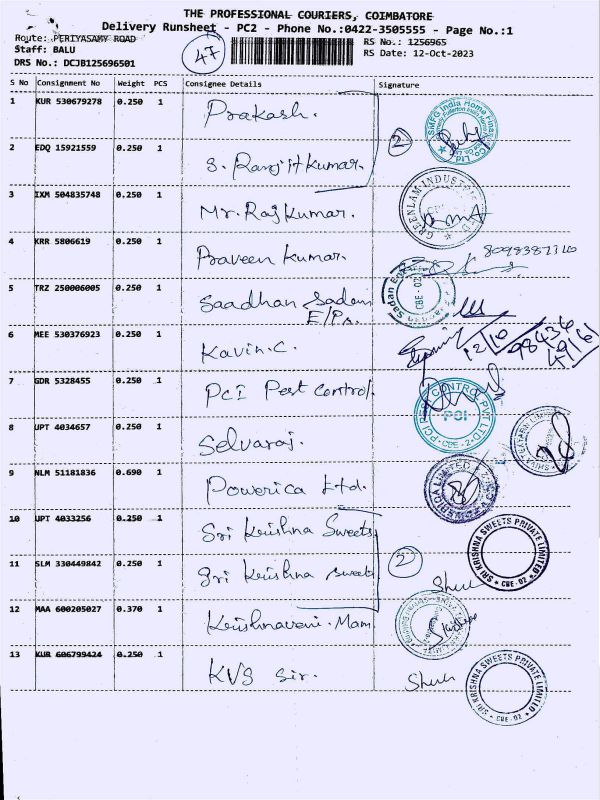 THE PROFESSIONAL COURIERS, COIMBATORE
Delivery Runsheet - PC2 - Phone No.:0422-3505555 - Page No.:1
Route: PERIYASAMY ROAD
RS No.: 1256965
Staff: BALU
47
RS Date: 12-Oct-2023
DRS No.: DCJB125696501
S No Consignment No Weight PCS Consignee Details Signature
1 KUR 530679278 0.250 1 Prakash.
SMFG India Home Finance Co. Ltd
2
2 EDQ 15921559 0.250 1 S. Ranjitkumar.
3 IXM 504835748 0.250 1 Mr. Rajkumar.
GREENLAM INDUSTRIES
4 KRR 5806619 0.250 1 Praveen Kumar.
5 TRZ 250006005 0.250 1 Saadhan Sadan
E/Ps.
Sadan CBE - 02
6 MEE 530376923 0.250 1 Kavin.C.
12/10
98436
7 GDR 5328455 0.250 1 PCI Pest Control.
PCI PEST CONTROL PVT LTD. CBE-2 PCI
8 UPT 4034657 0.250 1 Selvaraj.
9 NLM 51181836 0.690 1 Powerica Ltd.
POWERICA LIMITED
10 UPT 4033256 0.250 1 Sri Krishna Sweets
SRI KRISHNA SWEETS PRIVATE LIMITED CBE - 02
2
11 SLM 330449842 0.250 1 Sri Krishna sweets
12 MAA 600205027 0.370 1 Krishnaveni. Mam
13 KUR 606799424 0.250 1 KVS Sir.
SRI KRISHNA SWEETS PRIVATE LIMITED CBE - 02